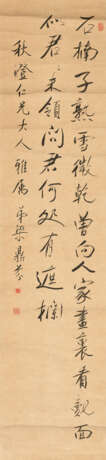 石楠子熟雪微乾曾向人家畫裏看覿面
似君〻未領問君何処有遮欄
秋澄仁兄大人雅属 弟梁鼎芬